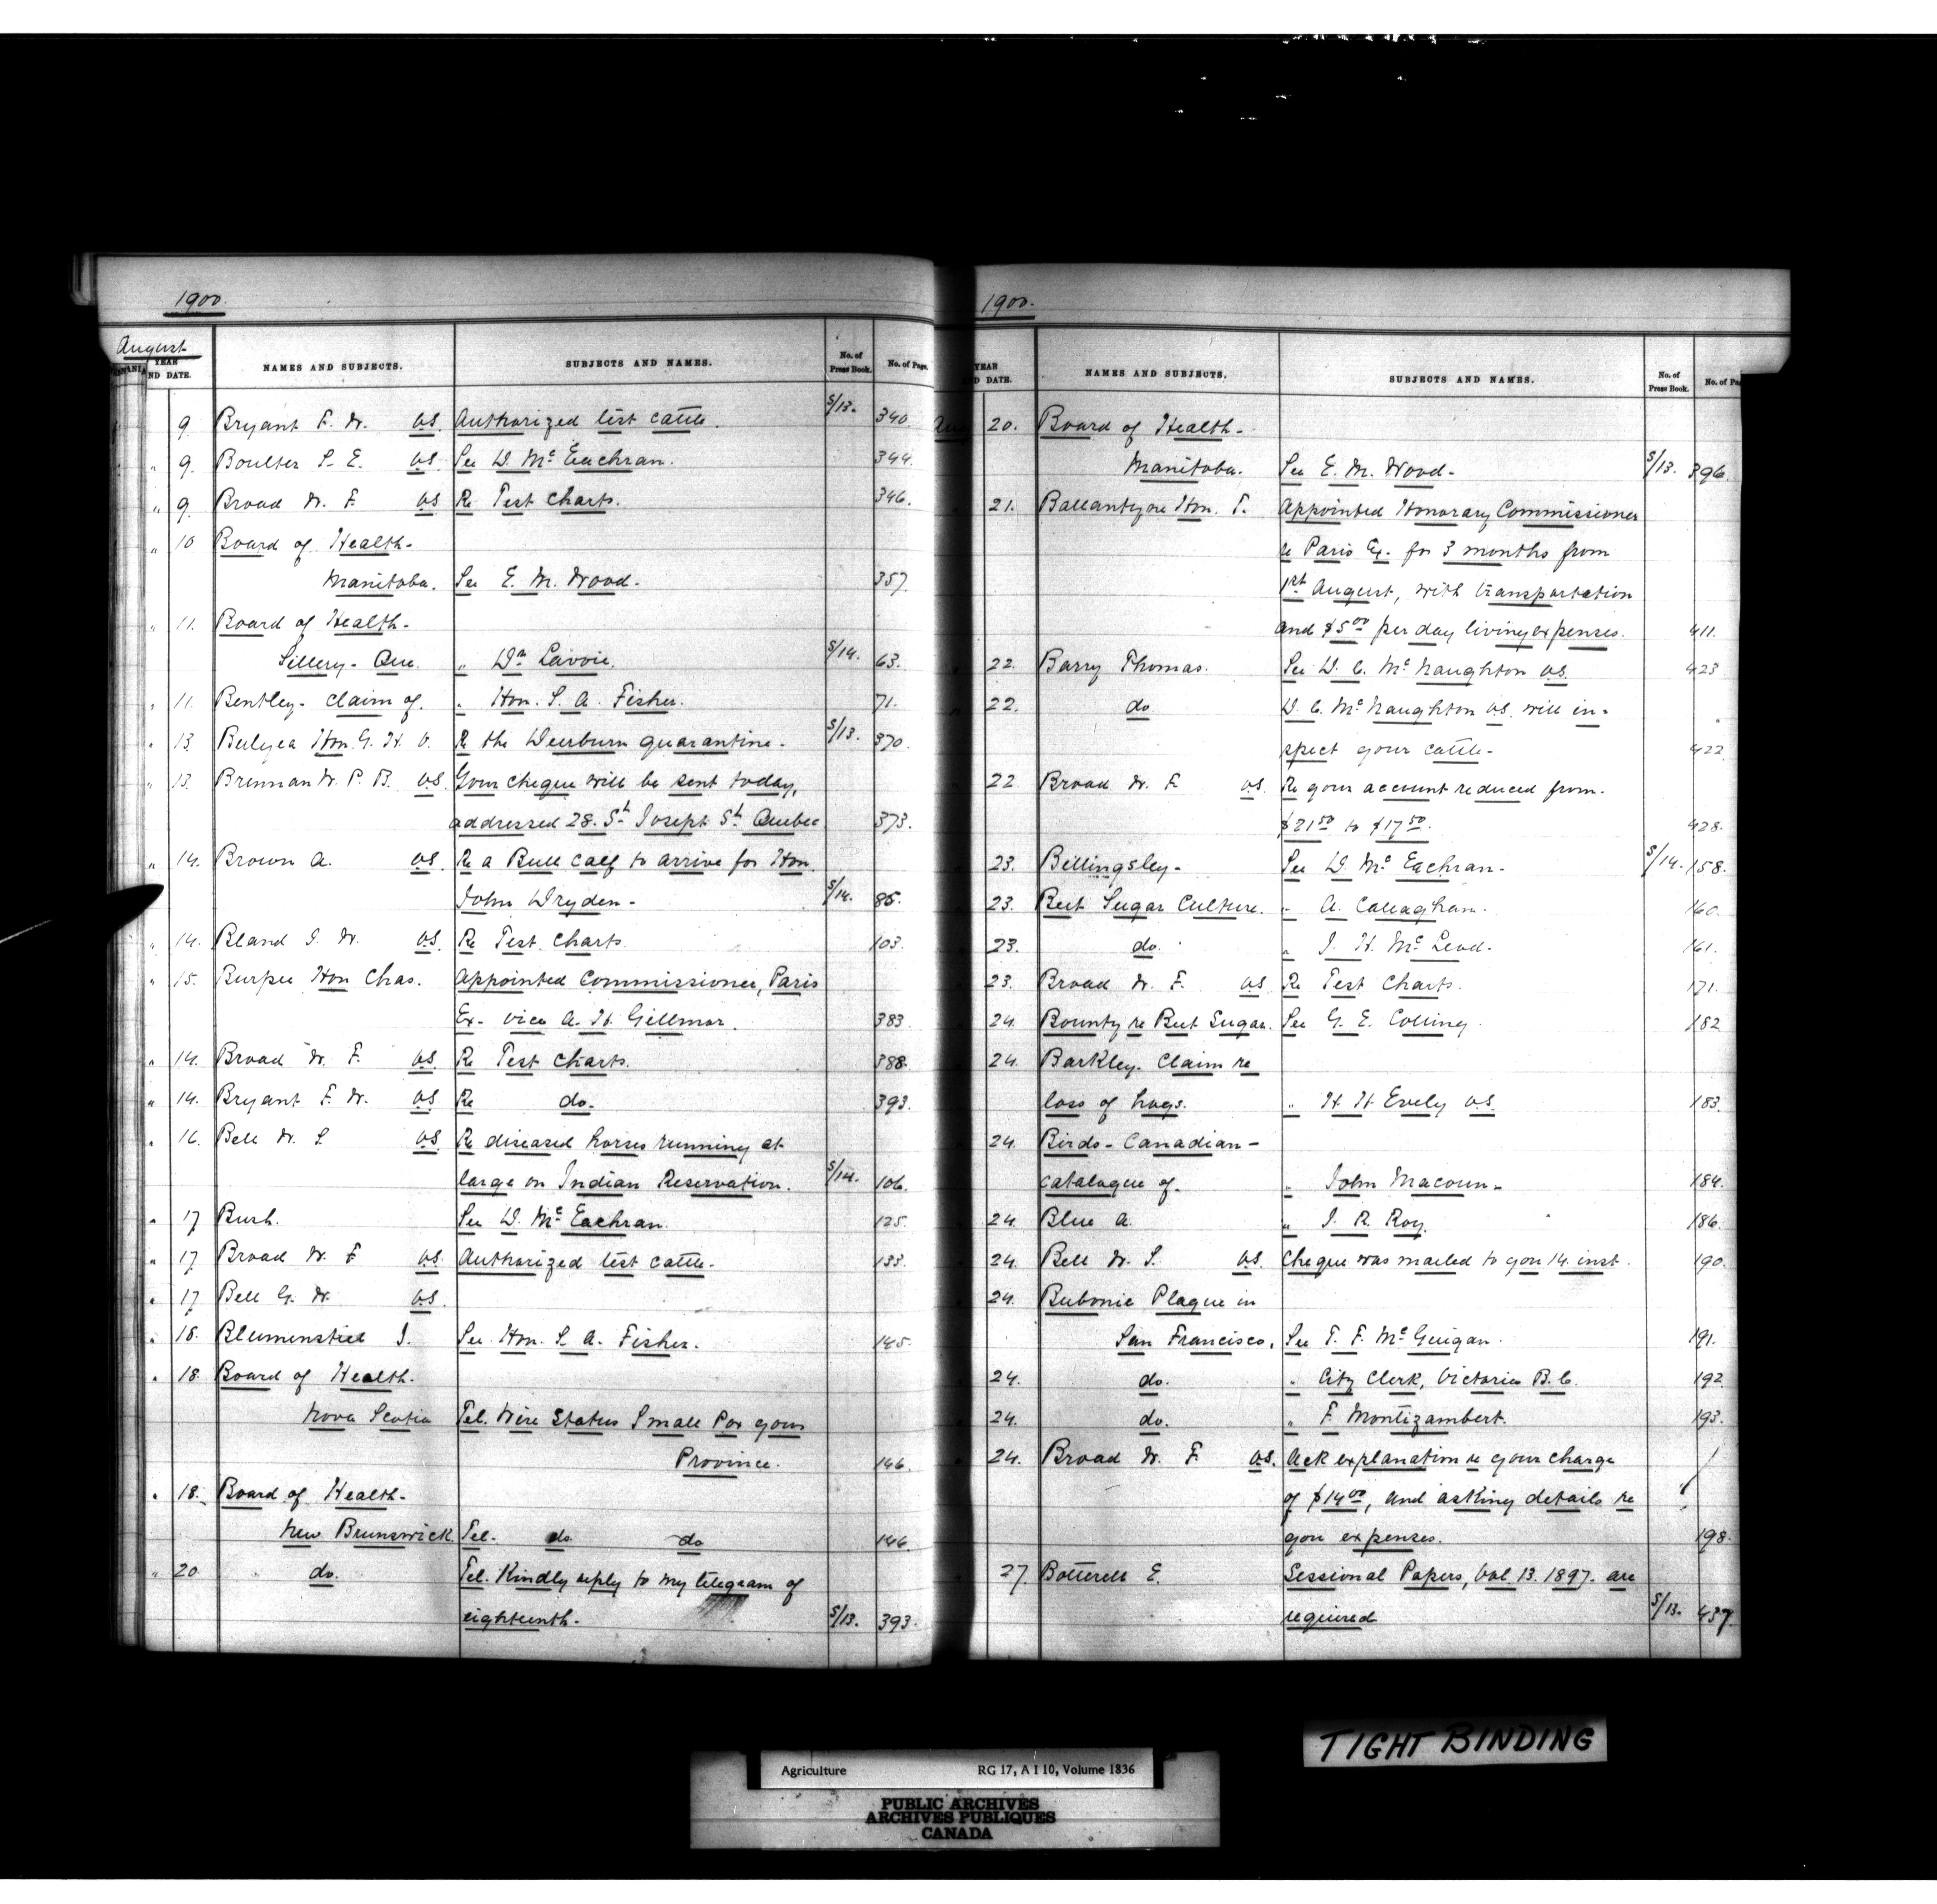 1900.
August
YEAR AND DATE. NAMES AND SUBJECTS. SUBJECTS AND NAMES. No. of Press Book. No. of Page.
9. Bryant F. W. V.S. Authorized test cattle. S/13. 340.
" 9. Boulter S. E. V.S. See D. McEachran. 344.
" 9. Broad W. F. V.S. Re Test Charts. 346.
" 10 Board of Health-
Manitoba. See E. M. Wood. 357.
" 11. Board of Health-
Sillery- Que. " Wm Lavoie. S/14. 63.
" 11. Bentley- Claim of. " Hon. S. A. Fisher. 71.
" 13. Bulyea Hon. G. H. V. Re the Weyburn quarantine. S/13. 370.
" 13. Brennan W. P. B. V.S. Your cheque will be sent today,
addressed 28. St Joseph St Quebec 373.
" 14. Brown A. V.S. Re a Bull calf to arrive for Hon.
John Dryden- S/14. 85.
" 14. Bland J. W. V.S. Re Test Charts. 103.
" 15. Burpee Hon Chas. Appointed Commissioner, Paris
Ex- vice A. H. Gillmor. 383.
" 14. Broad W. F. V.S. Re Test Charts. 388.
" 14. Bryant F. W. V.S. Re do. 393.
" 16. Bell W. S. V.S. Re diseased horses running at
large on Indian Reservation. S/14. 106.
" 17 Burh. See D. McEachran. 125.
" 17 Broad W. F V.S. Authorized test cattle. 133.
" 17 Bell G. W. V.S.
" 18. Blumenstiel J. See Hon. S. A. Fisher. 145.
" 18. Board of Health.
Nova Scotia Tel. Wire Status Small Pox your
Province. 146.
" 18. Board of Health-
New Brunswick. Tel. do do 146.
" 20 do. Tel. Kindly reply to my telegram of
eighteenth. S/13. 393.
1900.
YEAR AND DATE. NAMES AND SUBJECTS. SUBJECTS AND NAMES. No. of Press Book. No. of Page
Aug 20. Board of Health-
Manitoba. See E. M. Wood. S/13. 396.
21. Ballantyne Hon. T. Appointed Honorary Commissioner
re Paris Ex. for 3 months from
1st August, with transportation
and $5.00 per day living expenses. 411.
22. Barry Thomas. See D. C. McNaughton V.S. 423
22. do D. C. McNaughton V.S. will in-
spect your cattle- 422
22 Broad W. F. V.S. Re your account reduced from.
$21.50 to $17.50. 428.
23. Billingsley- See D. McEachran. S/14. 158.
23. Beet Sugar Culture. " A. Callaghan. 160.
23. do. " J. H. McLeod. 161.
23. Broad W. F. V.S. Re Test Charts. 171.
24. Bounty re Beet Sugar. See G. E. Colling. 182
24. Barkley. Claim re
loss of hogs. " H H Evely V.S. 183.
24. Birds- Canadian-
catalogue of. " John Macoun. 184.
24. Blue A. " J. R. Roy. 186.
24. Bell W. S. V.S. Cheque was mailed to you 14. inst. 190.
24. Bubonic Plague in
San Francisco. See T. F. McGuigan. 191.
24. do. " City Clerk, Victoria B.C. 192
24. do. " F. Montizambert. 193.
24. Broad W. F. V.S. Ack explanation re your charge
of $14.00, and asking details re
you expenses. 198.
27. Botterell E. Sessional Papers, Vol. 13. 1897. are
required S/13. 437.
TIGHT BINDING
Agriculture RG 17, A I 10, Volume 1836
PUBLIC ARCHIVES
ARCHIVES PUBLIQUES
CANADA